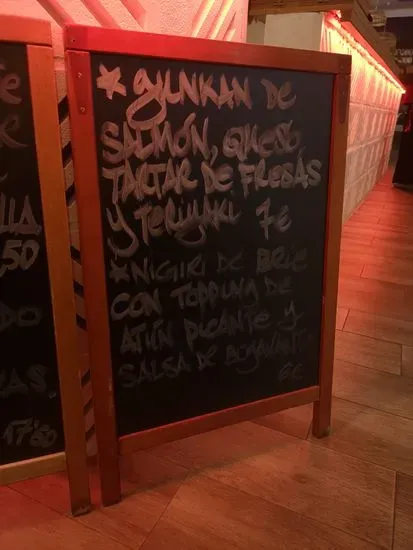 * GUNKAN DE
SALMÓN, QUESO,
TARTAR DE FRESAS
Y TERIYAKI 7€
* NIGIRI DE BRIE
CON TOPPING DE
ATÚN PICANTE Y
SALSA DE BOGAVANTE
6€
17'50